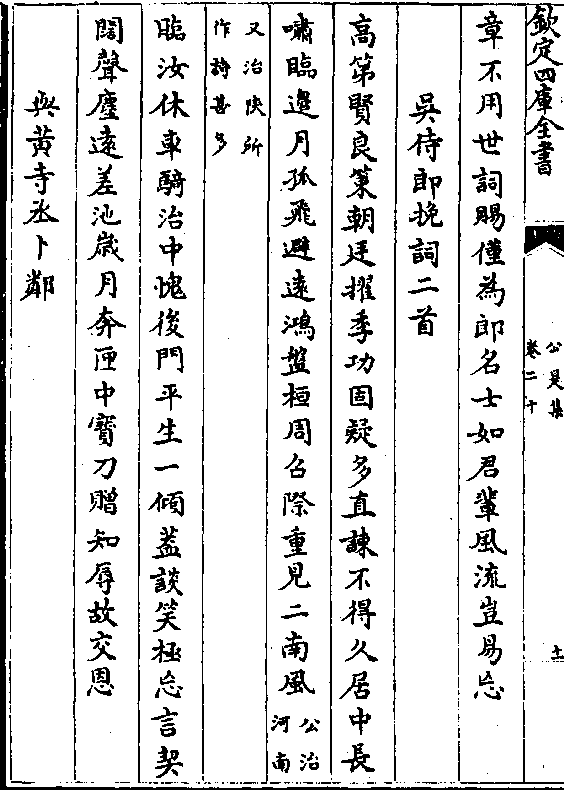 欽定四庫全書
公是集
卷二十
十
章不用世詞賜僅為郎名士如君輩風流豈易忘
吳侍郎挽詞二首
高第賢良策朝廷擢季功固疑多直諫不得久居中長
嘯臨邊月孤飛避遠鴻盤桓周召際重見二南風公治
河南
又治陜所
作詩甚多
臨汝休車騎治中愧後門平生一傾蓋談笑極忘言契
闊聲塵遠差池歲月奔匣中寶刀贈知辱故交恩
與黃寺丞卜鄰